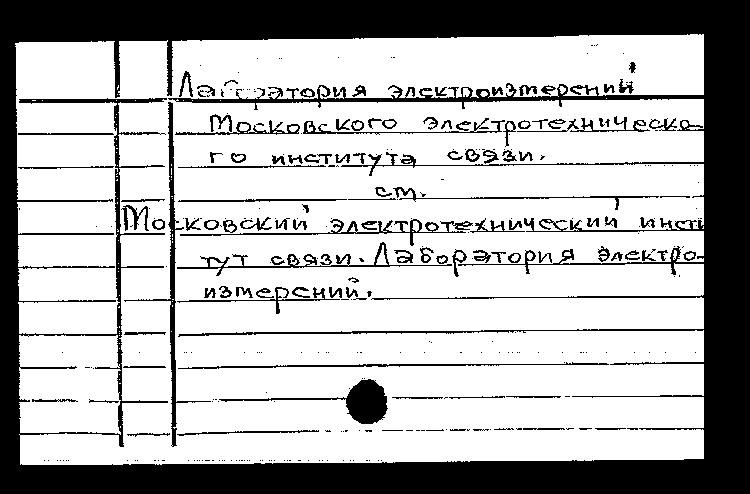 Лаборатория электроизмерений
Московского электротехническо-
го института связи.
см.
Московский электротехнический инсти
тут связи. Лаборатория электро-
измерений.